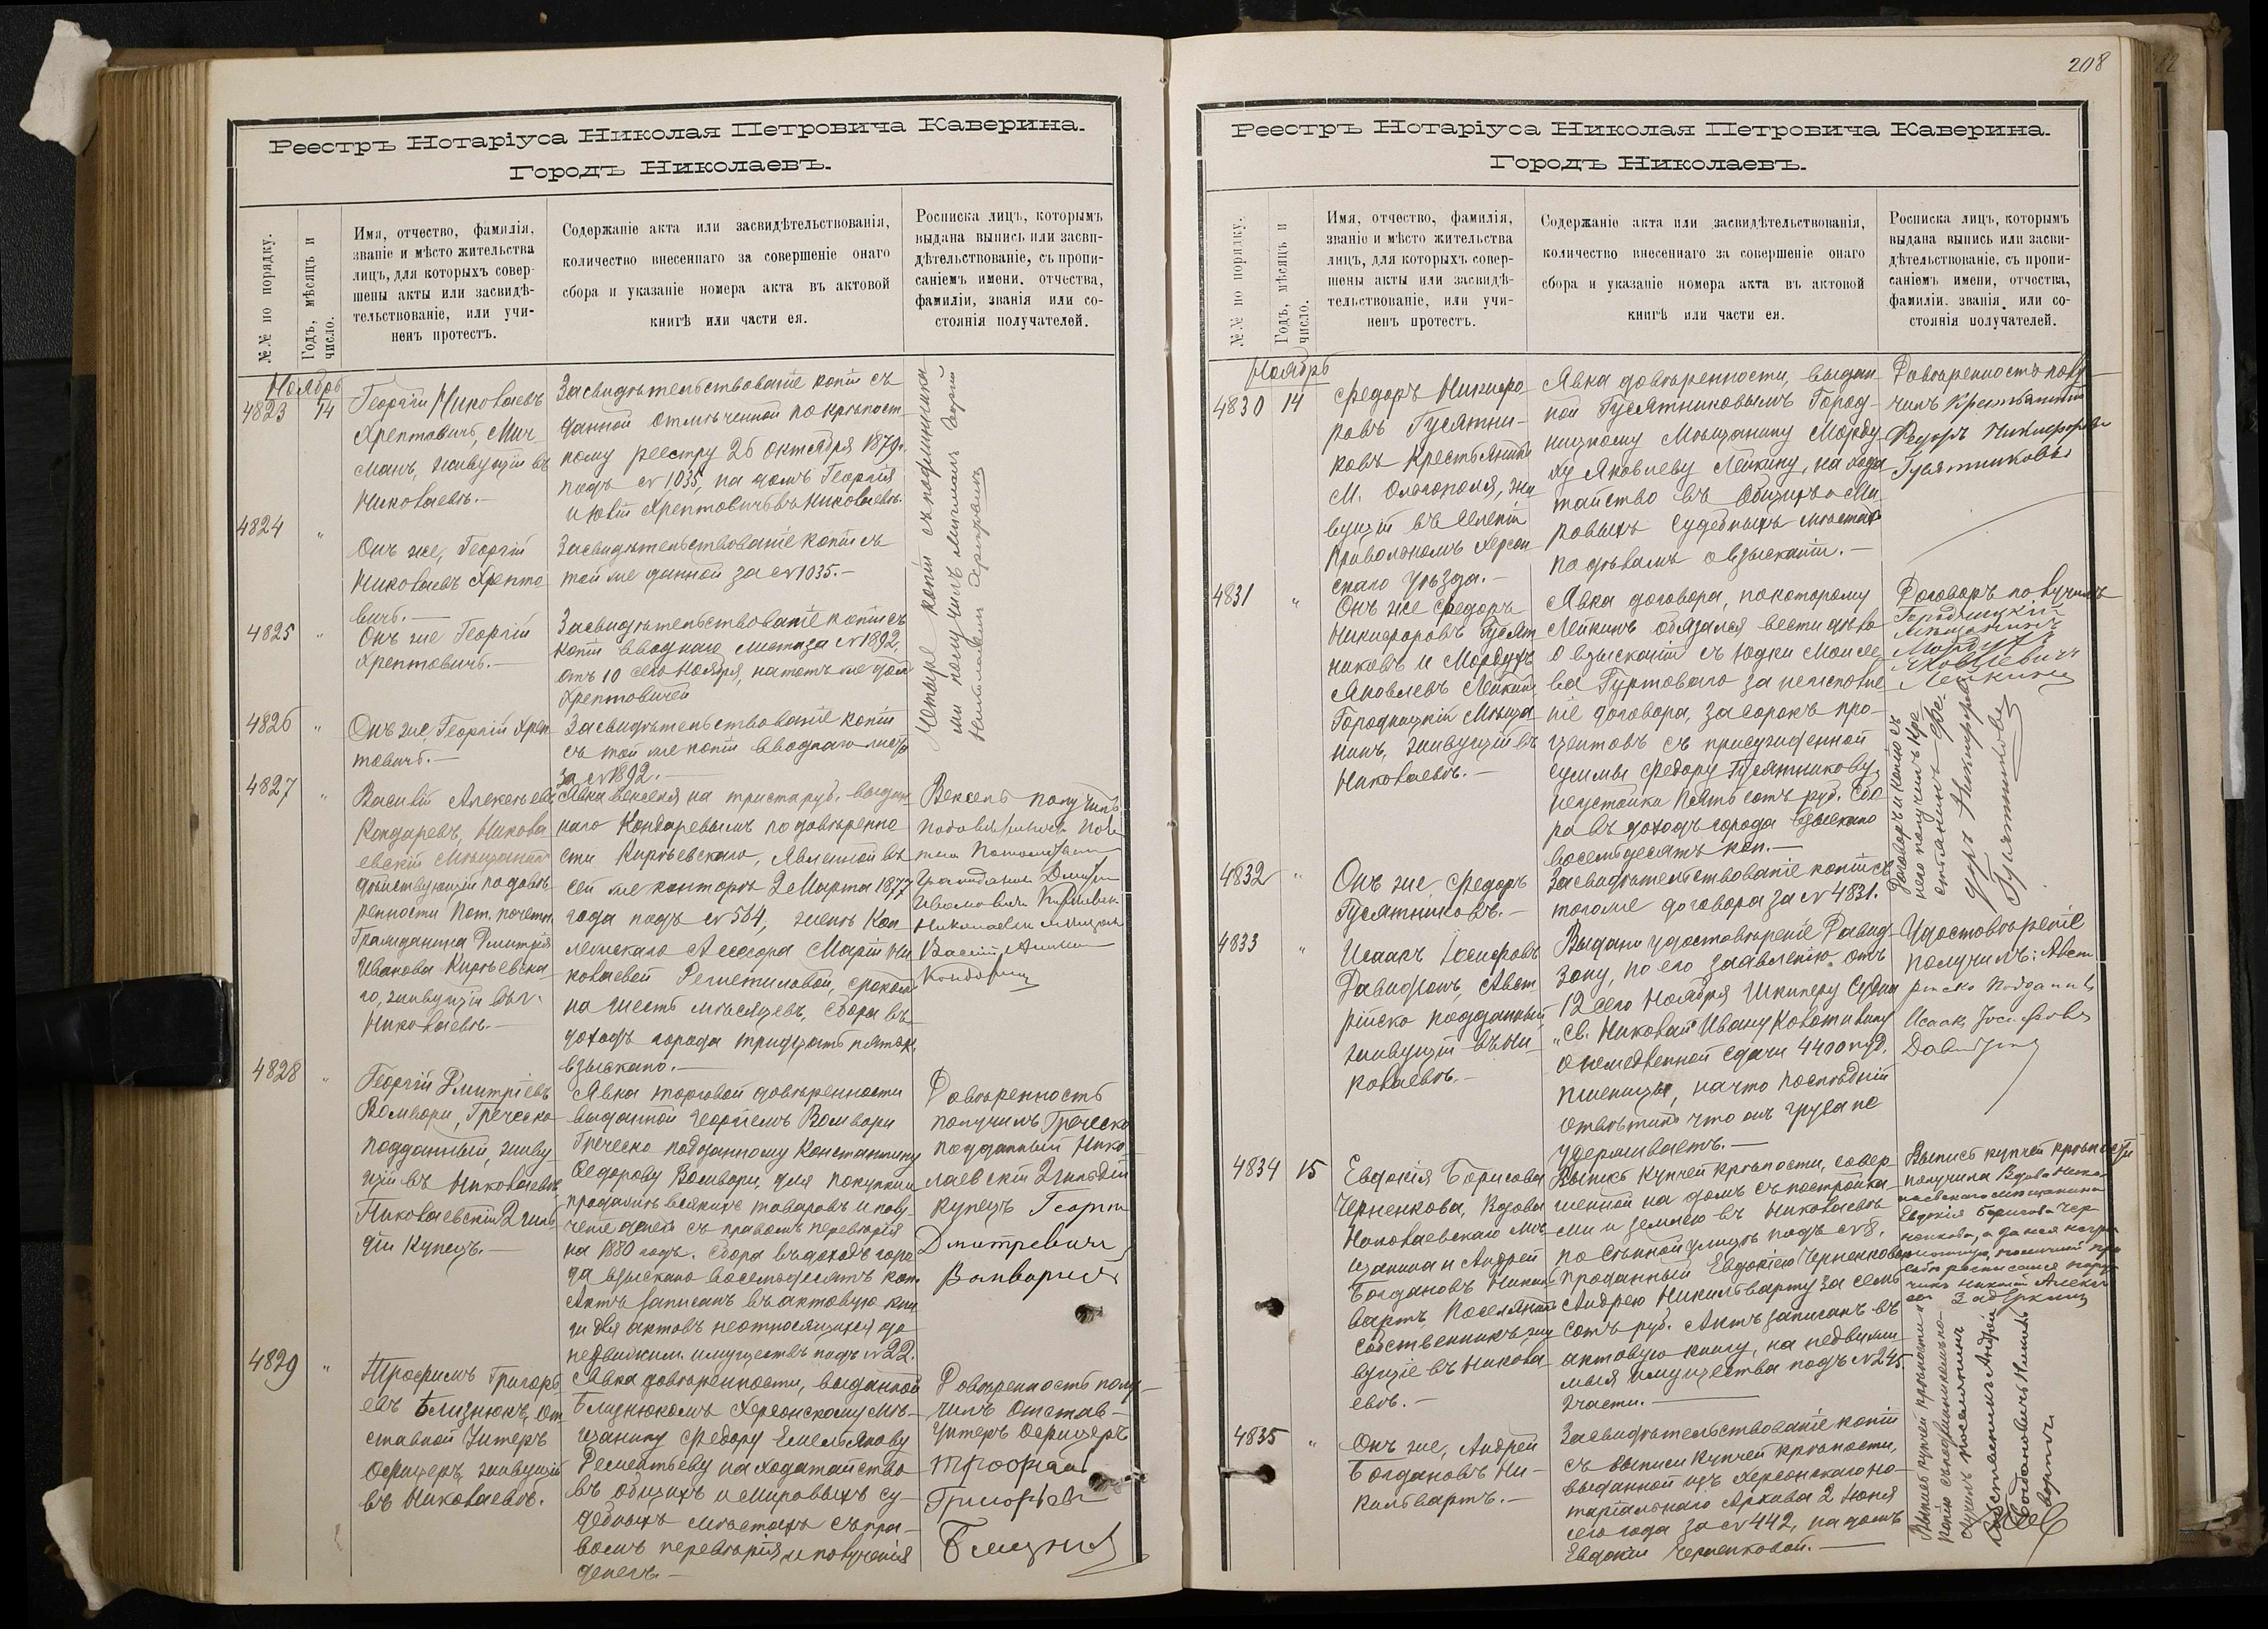 Реестръ Нотаріуса Николая Петровича Каверина.
Городъ Николаевъ.
№№ по порядку.
Годъ, мѣсяцъ и
число.
Имя, отчество, фамилія,
званіе и мѣсто жительства
лицъ, для которыхъ совер-
шены акты или засвидѣ-
тельствованіе, или учи-
ненъ протестъ.
Содержаніе акта или засвидѣтельствованія,
количество внесеннаго за совершеніе онаго
сбора и указаніе номера акта въ актовой
книгѣ или части ея.
Росписка лицъ, которымъ
выдана выпись или засви-
дѣтельствованіе, съ пропи-
саніемъ имени, отчества,
фамиліи, званія или со-
стоянія получателей.
Ноябрь
4823 14
Георгій Николаевъ
Хрептовичъ, Мич-
манъ, живущій въ
Николаевѣ.—
Засвидѣтельствованіе копіи съ
данной отмѣченной по крѣпост-
ному реестру 26 октября 1879 г.
подъ № 1035, на домъ Георгія
и Юліи Хрептовичъ въ Николаевѣ.
4824 "
Онъ же, Георгій
Николаевъ Хрепто-
вичъ.—
Засвидѣтельствованіе копіи съ
той же данной за № 1035.—
4825 "
Онъ же Георгій
Хрептовичъ.—
Засвидѣтельствованіе копіи съ
копіи вводнаго листа за № 1892,
отъ 10 сего Ноября, на тотъ же домъ
Хрептовичей
4826 "
Онъ же, Георгій Хреп-
товичъ.—
Засвидѣтельствованіе копіи
съ той же копіи вводнаго листа
за № 1892.—
Четыре копіи съ подлинника
ми получилъ Мичманъ Георгій
Николаевъ Хрептовичъ
4827 "
Василій Алексѣевъ
Кондаревъ, Никола-
евскій Мѣщанинъ
дѣйствующій по довѣ-
ренности Пот. почетн.
Гражданина Дмитрія
Иванова Кирѣевска-
го, живущій въ г.
Николаевѣ.—
Явка векселя на триста руб. выдан-
наго Кондаревымъ по довѣренно-
сти Кирѣевскаго, явленной въ
сей же конторѣ 2 Марта 1877
года подъ № 564, женѣ Кол-
лежскаго Ассесора Маріи Ни-
колаевой Решетиловой, срокомъ
на шесть мѣсяцевъ. Сбора въ
доходъ города тридцать пять к.
взыскано.—
Вексель получилъ
Гражданина Дмитрія
Ивановича Кирѣевск
Николаевскій мѣщан
Василій
Кондаревъ
4828 "
Георгій Дмитріевъ
Вальвари, Греческо-
подданный, живу-
щій въ Николаевѣ,
Николаевскій 2 гиль-
діи Купецъ.—
Явка торговой довѣренности
выданной Георгіемъ Вальвари
Греческо подданному Константину
Ѳедорову Вальвари, для покупки и
продажи всякихъ товаровъ и полу-
ченія денегъ съ правомъ перевѣрія
на 1880 годъ. Сбора въ доходъ горо-
да взыскано восемьдесятъ коп.
Актъ записанъ въ актовую кни-
гу для актовъ неотносящихся до
недвижим. имуществъ подъ № 22.
Довѣренность
получилъ Греческо
подданный Нико-
лаевскій 2 гильдіи
купецъ Георги
Дмитревичъ
Валвари
4829 "
Трофимъ Григорь-
евъ Близнюкъ, От-
ставной Унтеръ
Офицеръ, живущій
въ Николаевѣ.
Явка довѣренности, выданной
Близнюкомъ Херсонскому Мѣ-
щанину Федору Емельянову
Дементьеву на ходатайство
въ общихъ и мировыхъ су-
дебныхъ мѣстахъ съ пра-
вомъ перевѣрія и полученія
денегъ.—
Довѣренность полу-
чилъ Отстав-
Унтеръ Офицеръ
Трофим
Григорьев
Близнюк
208
Реестръ Нотаріуса Николая Петровича Каверина.
Городъ Николаевъ.
№№ по порядку.
Годъ, мѣсяцъ и
число.
Имя, отчество, фамилія,
званіе и мѣсто жительства
лицъ, для которыхъ совер-
шены акты или засвидѣ-
тельствованіе, или учи-
ненъ протестъ.
Содержаніе акта или засвидѣтельствованія,
количество внесеннаго за совершеніе онаго
сбора и указаніе номера акта въ актовой
книгѣ или части ея.
Росписка лицъ, которымъ
выдана выпись или засви-
дѣтельствованіе, съ пропи-
саніемъ имени, отчества,
фамиліи, званія, или со-
стоянія получателей.
Ноябрь
4830 14
Федоръ Никифо-
ровъ Гусятни-
ковъ Крестьянинъ
М. Ольгополя, жи-
вущій въ селеніи
Привольномъ Херсон-
скаго уѣзда.—
Явка довѣренности, выдан-
ной Гусятниковымъ Город-
ницкому Мѣщанину Морду-
ху Яковлеву Лейкину, на хода-
тайство въ общихъ и Ми-
ровыхъ судебныхъ мѣстахъ
по дѣламъ о взысканіи.—
Довѣренность полу-
чилъ Крестьянинъ
Федоръ Никифоровъ
Гусятниковъ
4831 "
Онъ же Федоръ
Никифоровъ Гусят-
никовъ и Мордухъ
Яковлевъ Лейкинъ
Городницкій Мѣща-
нинъ, живущій въ
Николаевѣ.—
Явка договора, по которому
Лейкинъ обязался вести дѣло
о взысканіи съ Юдки Моисее-
ва Гуртоваго за неисполне-
ніе договора, за сорокъ про-
центовъ съ присужденной
суммы Федору Гусятникову,
неустойки пять сотъ руб. Сбо-
ра въ доходъ города взыскано
восемьдесятъ коп.—
Договоръ получилъ
Городницкій
Мѣщанинъ
Мордухъ
Яковлевичъ
Лейкинъ
4832 "
Онъ же Федоръ
Гусятниковъ.—
Засвидѣтельствованіе копіи съ
того же договора за № 4831.
Договоръ и копію съ
него получилъ Кре-
стьянинъ Фе-
доръ Никифоровъ
Гусятниковъ
4833 "
Исаакъ Іосифовъ
Давидзонъ, Авст-
рійско подданный,
живущій въ Ни-
колаевѣ.—
Выдано удостовѣреніе Давид-
зону, по его заявленію отъ
12 сего Ноября Шкиперу Судна
„Св. Николай" Ивану
о немедленной сдачи 4400 пуд.
пшеницы, на что послѣдній
отвѣтилъ что онъ груза не
удерживаетъ.—
Удостовѣреніе
получилъ: Авст
рійско подданный
Исаакъ Іосифовъ
Давидзонъ
4834 15
Евдокія Борисова
Черненкова, Вдова
Николаевскаго мѣ-
щанина и Андрей
Богдановъ Никиль-
вартъ, Поселянинъ
собственникъ, жи-
вущіе въ Никола-
евѣ.—
Выпись Купчей крѣпости, совер-
шенной на домъ съ постройка-
ми и землею въ Николаевѣ
по улицѣ подъ № 8,
проданный Евдокіею Черненковой
Андрею Никильварту за семь
сотъ руб. Актъ записанъ въ
актовую книгу, на недвижи-
мыя имущества подъ № 245
2 части.—
Выпись купчей крѣпости
получила Вдова Нико-
лаевскаго мѣщанина
Евдокія Борисова Чер-
ненкова, а за нея неграмотную,
росписался
Николай Алексѣ
4835 "
Онъ же, Андрей
Богдановъ Ни-
кильвартъ.—
Засвидѣтельствованіе копіи
съ выписи Купчей крѣпости,
выданной изъ Херсонскаго но-
таріальнаго Архива 2 Июня
сего года за № 442, на домъ
Евдокіи Черненковой.—
Выпись купчей крѣпости и
копію съ подлинникомъ по-
лучилъ поселянинъ
собственникъ Андрей
Богдановичъ Никиль
вартъ